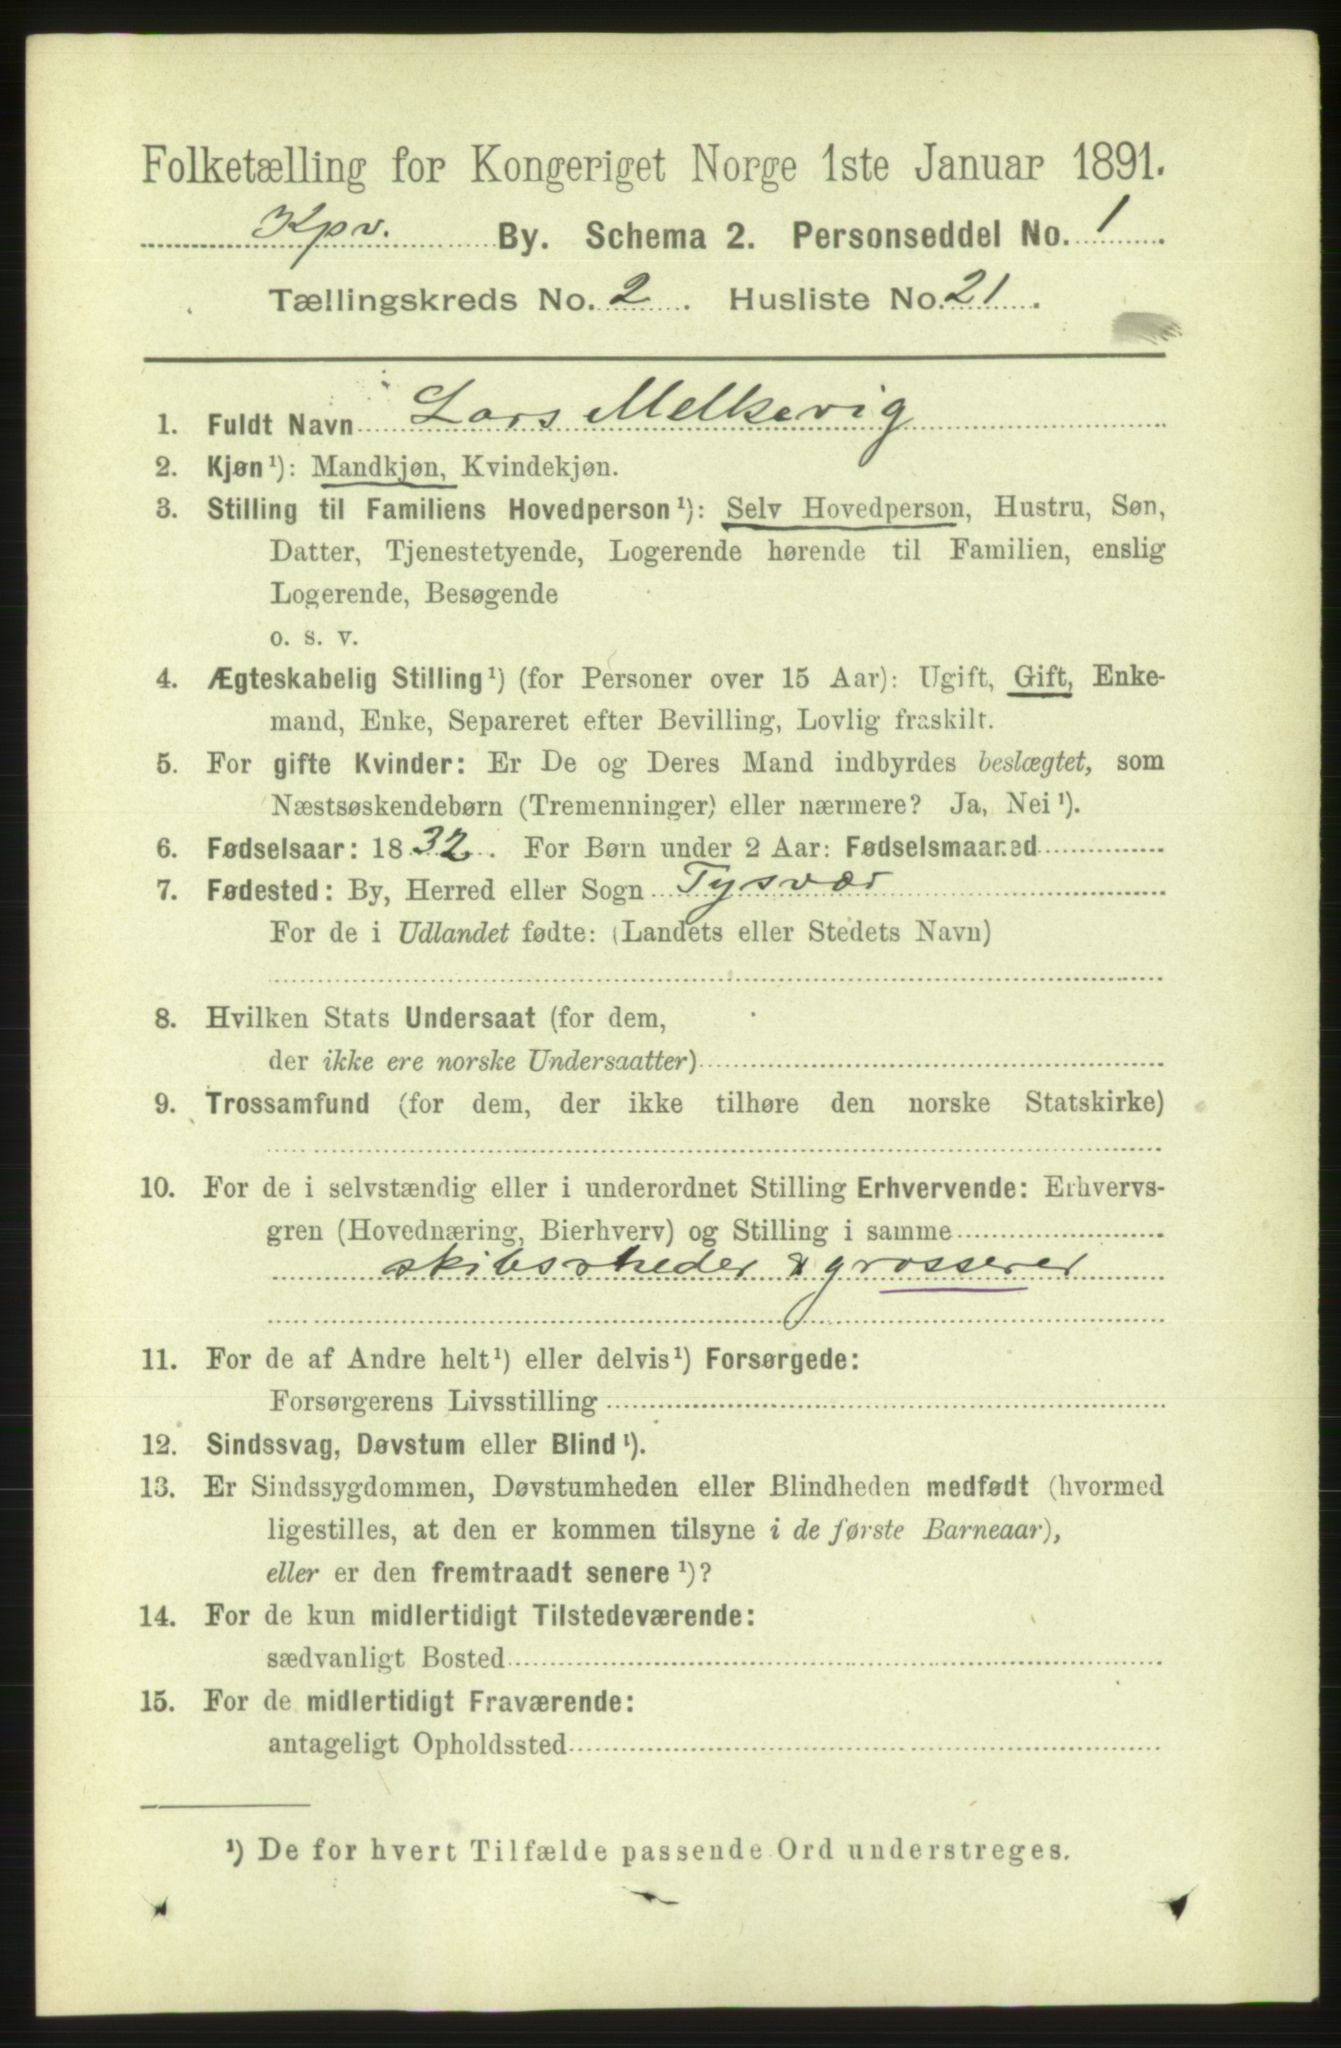 Folketælling for Kongeriget Norge 1ste Januar 1891.
Kpv. By. Schema 2. Personseddel No. 1
Tællingskreds No. 2. Husliste No. 21.
1. Fuldt Navn Lars Melkevig
2. Kjøn¹): Mandkjøn, Kvindekjøn.
3. Stilling til Familiens Hovedperson¹): Selv Hovedperson, Hustru, Søn,
Datter, Tjenestetyende, Logerende hørende til Familien, enslig
Logerende, Besøgende
o. s. v.
4. Ægteskabelig Stilling¹) (for Personer over 15 Aar): Ugift, Gift, Enke-
mand, Enke, Separeret efter Bevilling, Lovlig fraskilt.
5. For gifte Kvinder: Er De og Deres Mand indbyrdes beslægtet, som
Næstsøskendebørn (Tremenninger) eller nærmere? Ja, Nei¹).
6. Fødselsaar: 1832. For Børn under 2 Aar: Fødselsmaaned
7. Fødested: By, Herred eller Sogn Tysvær
For de i Udlandet fødte: (Landets eller Stedets Navn)
8. Hvilken Stats Undersaat (for dem,
der ikke ere norske Undersaatter)
9. Trossamfund (for dem, der ikke tilhøre den norske Statskirke)
10. For de i selvstændig eller i underordnet Stilling Erhvervende: Erhvervs-
gren (Hovednæring, Bierhverv) og Stilling i samme
skibsrheder & grosserer
11. For de af Andre helt¹) eller delvis¹) Forsørgede:
Forsørgerens Livsstilling
12. Sindssvag, Døvstum eller Blind¹).
13. Er Sindssygdommen, Døvstumheden eller Blindheden medfødt (hvormed
ligestilles, at den er kommen tilsyne i de første Barneaar),
eller er den fremtraadt senere¹)?
14. For de kun midlertidigt Tilstedeværende:
sædvanligt Bosted
15. For de midlertidigt Fraværende:
antageligt Opholdssted
¹) De for hvert Tilfælde passende Ord understreges.